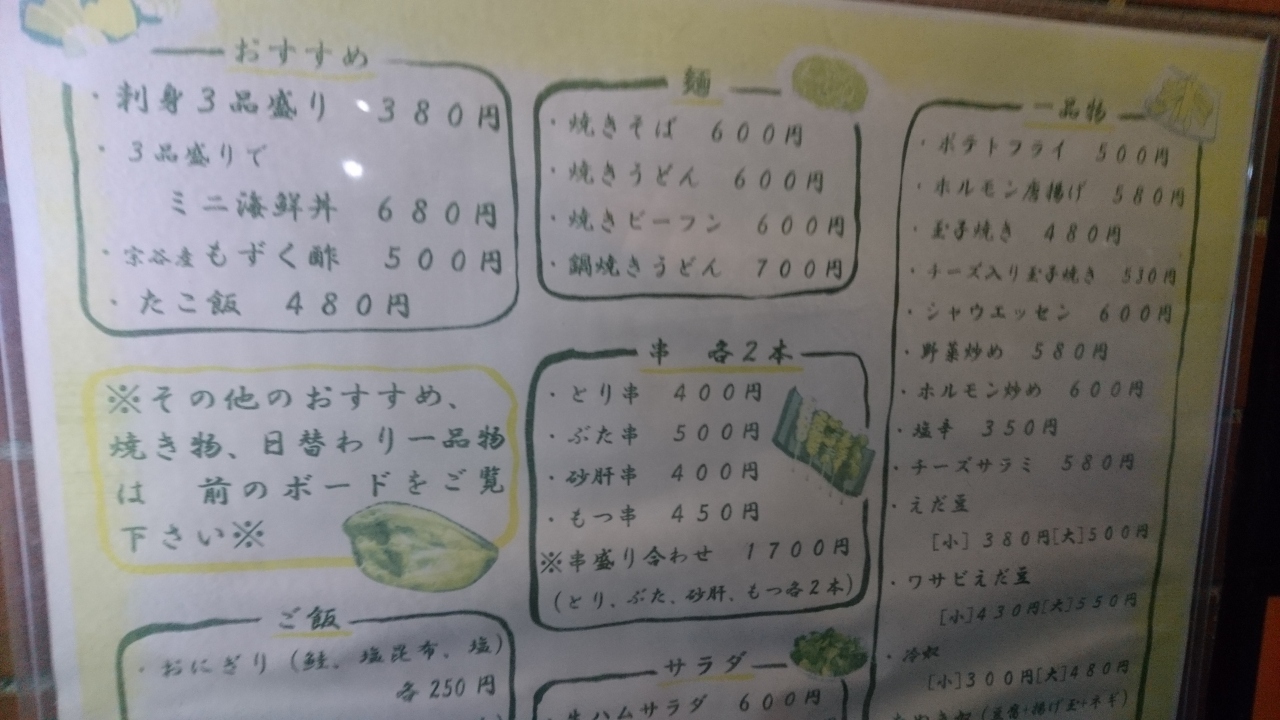 おすすめ
・刺身３品盛り ３８０円
・３品盛りで
ミニ海鮮丼 ６８０円
・宗谷産もずく酢 ５００円
・たこ飯 ４８０円
※その他のおすすめ、
焼き物、日替わり一品物
は 前のボードをご覧
下さい※
ご飯
・おにぎり（鮭、塩昆布、塩）
各250円
麺
・焼きそば ６００円
・焼きうどん ６００円
・焼きビーフン ６００円
・鍋焼きうどん ７００円
串 各２本
・とり串 ４００円
・ぶた串 ５００円
・砂肝串 ４００円
・もつ串 ４５０円
※串盛り合わせ １７００円
（とり、ぶた、砂肝、もつ各２本）
サラダ
・生ハムサラダ ６００円
一品物
・ポテトフライ ５００円
・ホルモン唐揚げ ５８０円
・玉子焼き ４８０円
・チーズ入り玉子焼き ５３０円
・シャウエッセン ６００円
・野菜炒め ５８０円
・ホルモン炒め ６００円
・塩辛 ３５０円
・チーズサラミ ５８０円
・えだ豆
［小］３８０円［大］５００円
・ワサビえだ豆
［小］４３０円［大］５５０円
・冷奴
［小］３００円［大］４８０円
（豆腐+揚げ玉+ネギ）